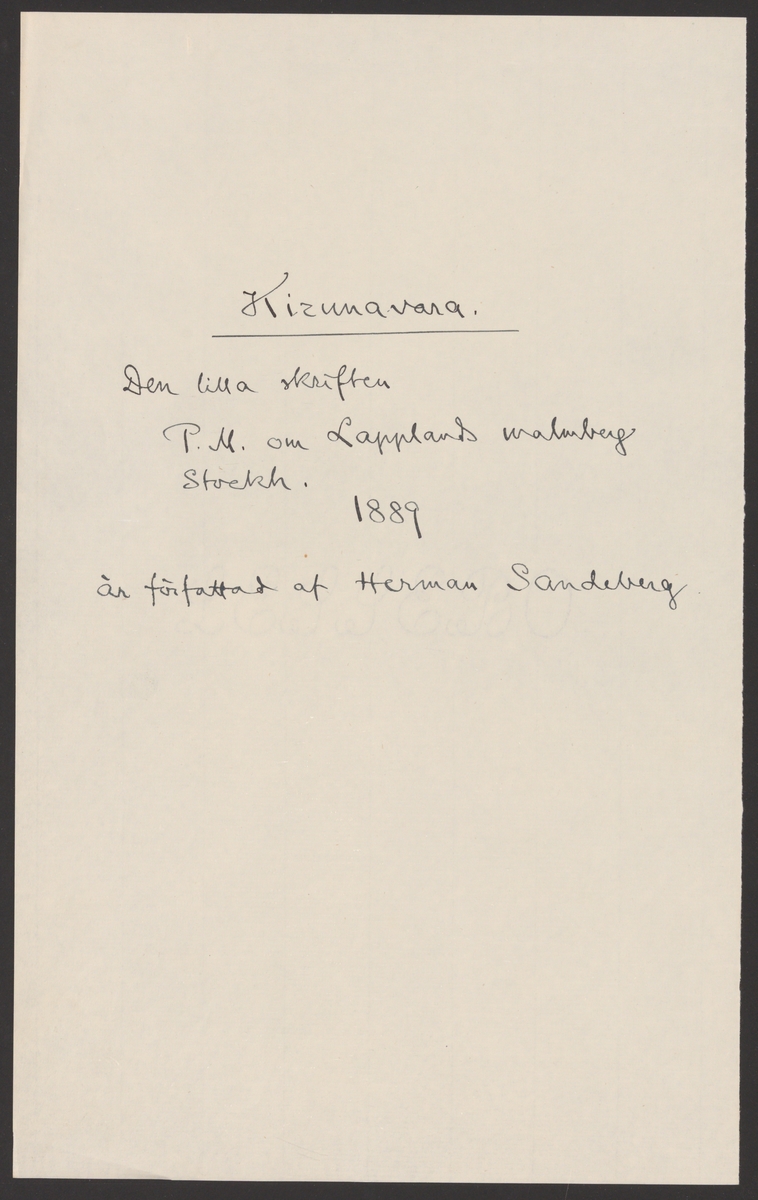 Kirunavara.
Den lilla skriften
P. M. om Lapplands malmberg
Stockh.
1889
är författad af Herman Sandeberg